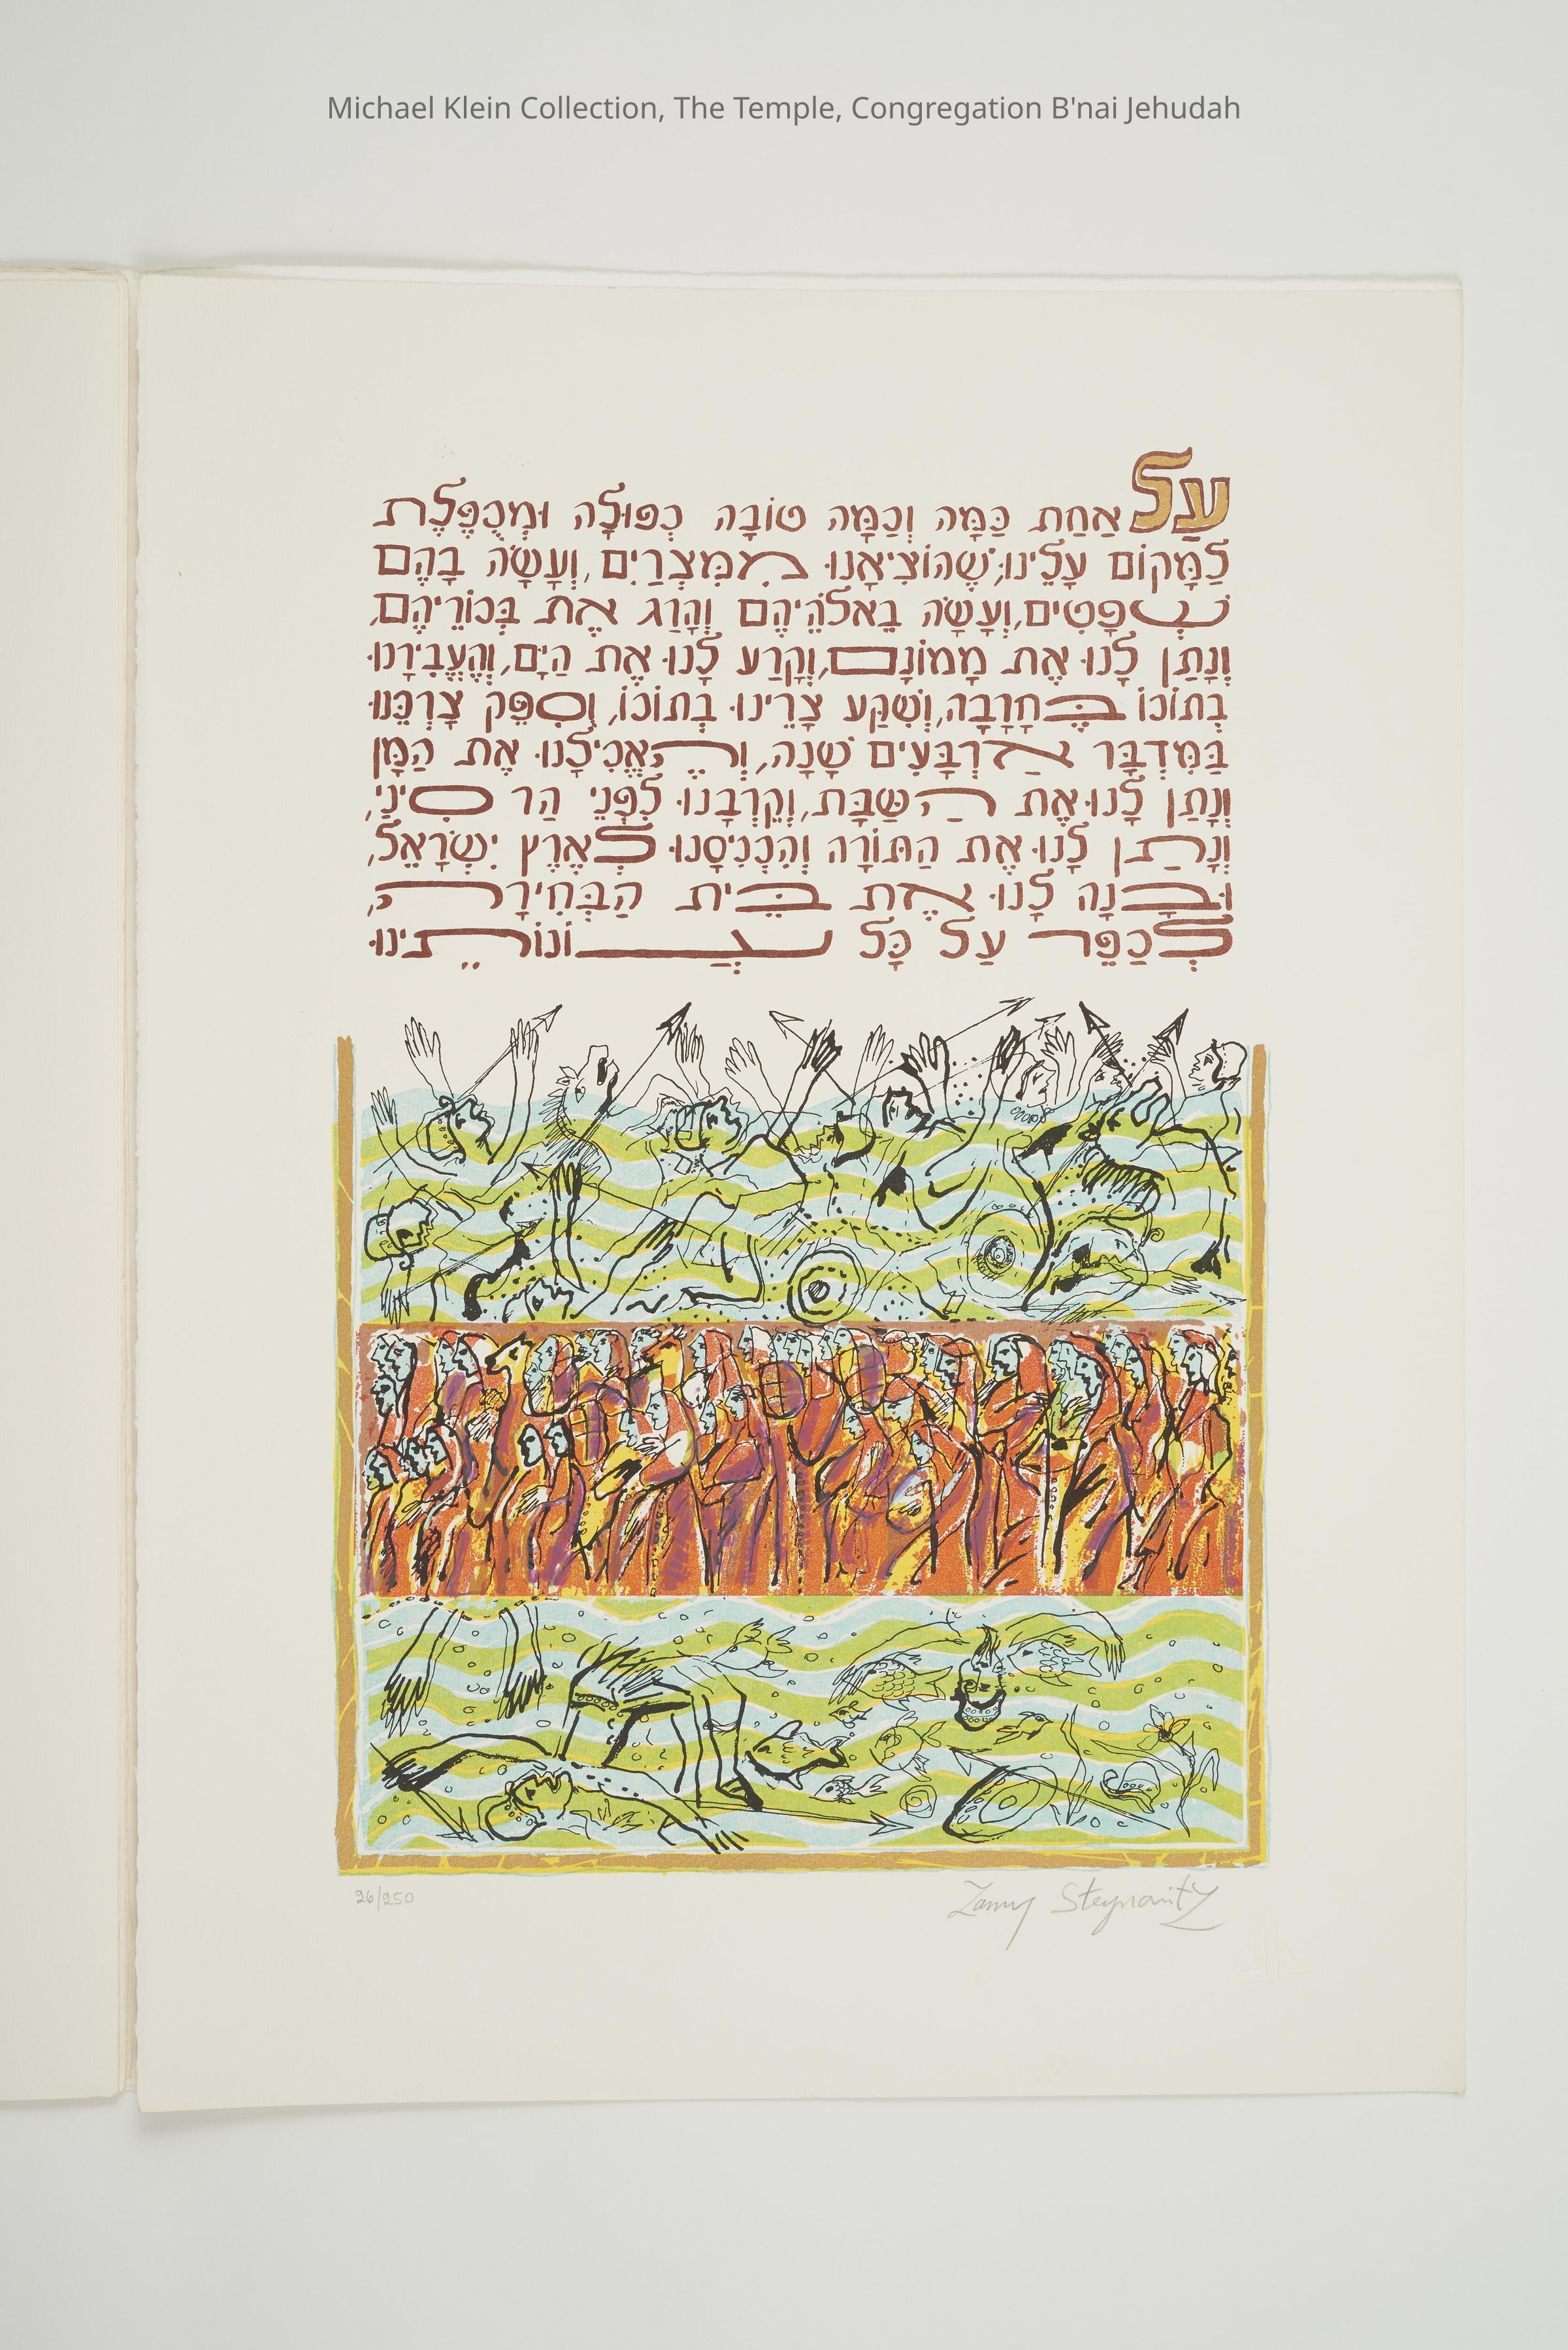 Michael Klein Collection, The Temple, Congregation B'nai Jehudah
עַל אַחַת כַּמָּה וְכַמָּה טוֹבָה כְפוּלָה וּמְכֻפֶּלֶת
לַמָּקוֹם עָלֵינוּ, שֶׁהוֹצִיאָנוּ מִמִּצְרַיִם, וְעָשָׂה בָהֶם
שְׁפָטִים, וְעָשָׂה בֵאלֹהֵיהֶם וְהָרַג אֶת בְּכוֹרֵיהֶם,
וְנָתַן לָנוּ אֶת מָמוֹנָם, וְקָרַע לָנוּ אֶת הַיָּם, וְהֶעֱבִירָנוּ
בְתוֹכוֹ בֶּחָרָבָה, וְשִׁקַּע צָרֵינוּ בְּתוֹכוֹ, וְסִפֵּק צָרְכֵּנוּ
בַּמִּדְבָּר אַרְבָּעִים שָׁנָה, וְהֶאֱכִילָנוּ אֶת הַמָּן
וְנָתַן לָנוּ אֶת הַשַּׁבָּת, וְקֵרְבָנוּ לִפְנֵי הַר סִינַי,
וְנָתַן לָנוּ אֶת הַתּוֹרָה וְהִכְנִיסָנוּ לְאֶרֶץ יִשְׂרָאֵל,
וּבָנָה לָנוּ אֶת בֵּית הַבְּחִירָה,
לְכַפֵּר עַל כָּל עֲוֹנוֹתֵינוּ
26/250
Zamy Steynovitz